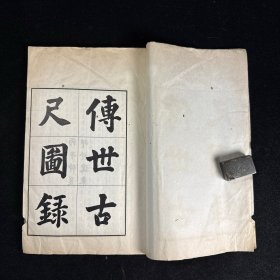 傳世古
尺圖録